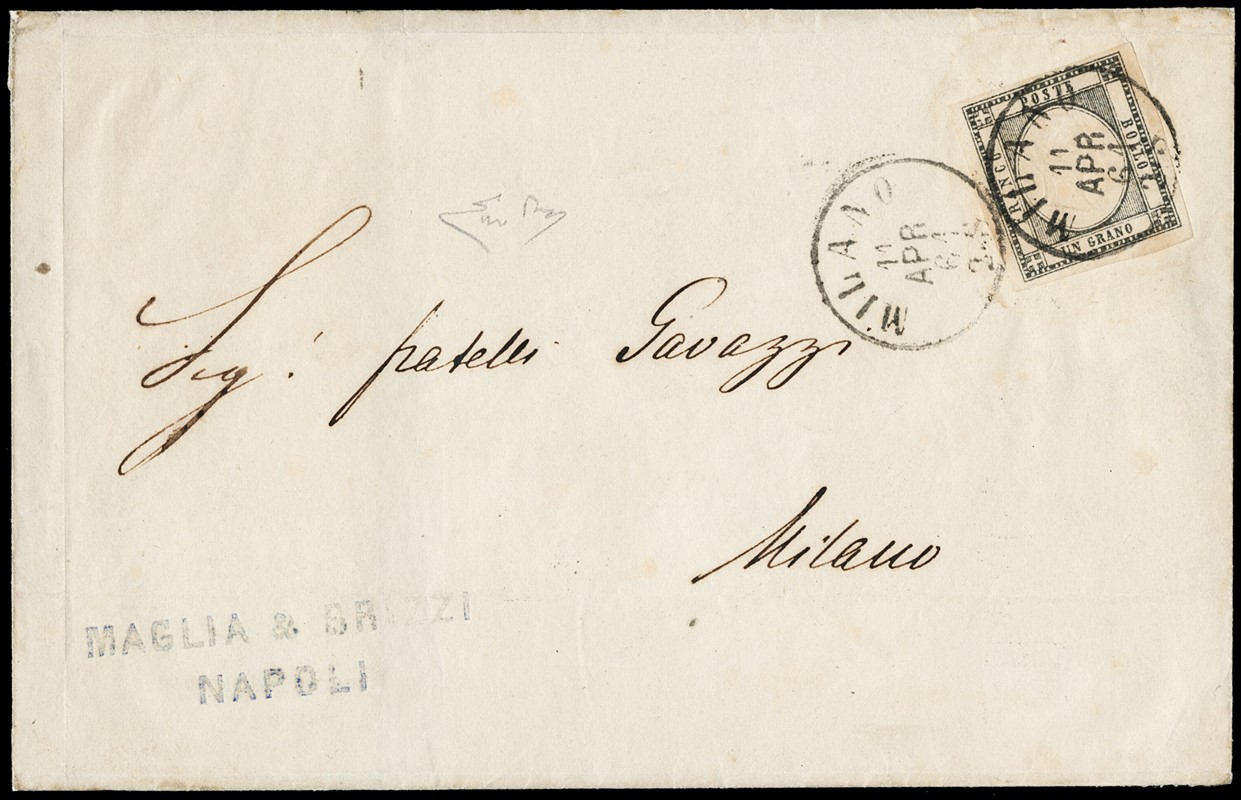 FRANCO
POSTE
BOLLO
UN GRANO
MILANO
11
APR
61
MILANO
11
APR
61
2.S
Sig.! fratelli Gavazzi
Milano
MAGLIA & BRIZZI
NAPOLI